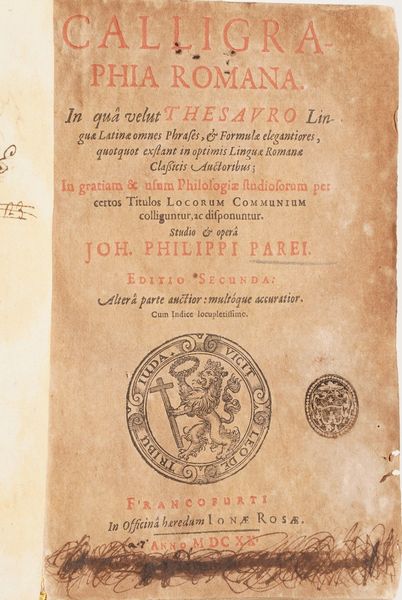 CALLIGRA-
PHIA ROMANA.
In quâ velut THESAVRO Lin-
guæ Latinæ omnes Phrases, & Formulæ elegantiores,
quotquot exstant in optimis Linguæ Romanæ
Classicis Auctoribus;
In gratiam & usum Philologiæ studiosorum per
certos Titulos LOCORUM COMMUNIUM
colliguntur, ac disponuntur.
Studio & operâ
JOH. PHILIPPI PAREI.
EDITIO SECUNDA:
Alterâ parte auctior: multóque accuratior.
Cum Indice locupletissimo.
VICIT LEO DE TRIBU IUDA.
FRANCOFURTI
In Officinâ hæredum IONÆ ROSÆ.
ANNO MDCXX